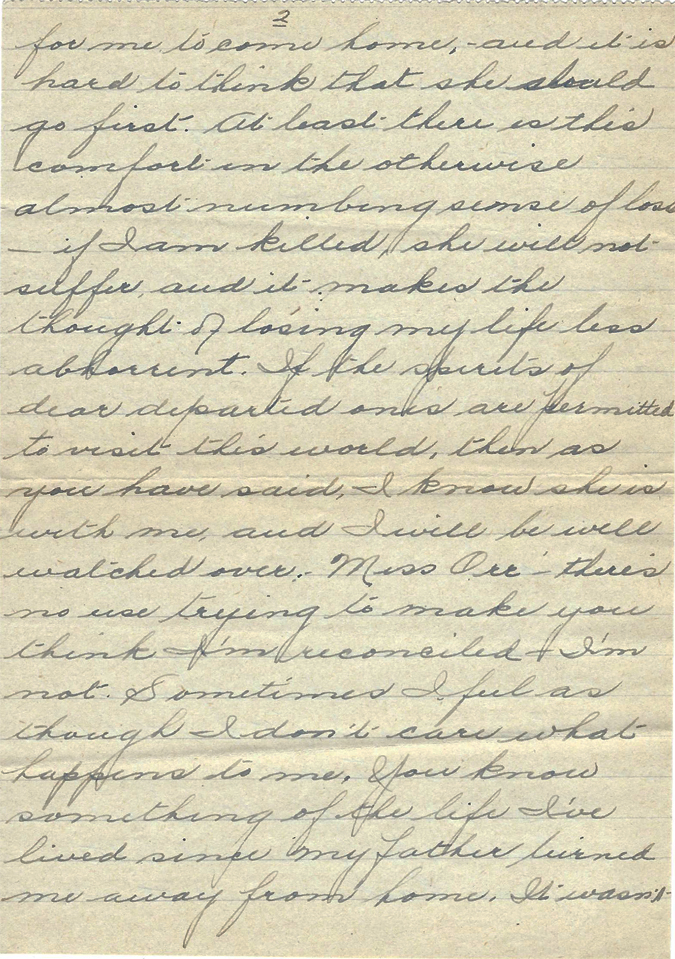 2
for me to come home, - and it is
hard to think that she should
go first. At least there is this
comfort in the otherwise
almost numbing sense of loss
— if I am killed, she will not
suffer, and it makes the
thought of losing my life less
abhorrent. If the spirits of
dear departed ones are permitted
to visit this world, then as
you have said, I know she is
with me, and I will be well
watched over. - Miss Orr - there's
no use trying to make you
think I'm reconciled - I'm
not. Sometimes I feel as
though I don't care what
happens to me. You know
something of the life I've
lived since my father turned
me away from home. It wasn't